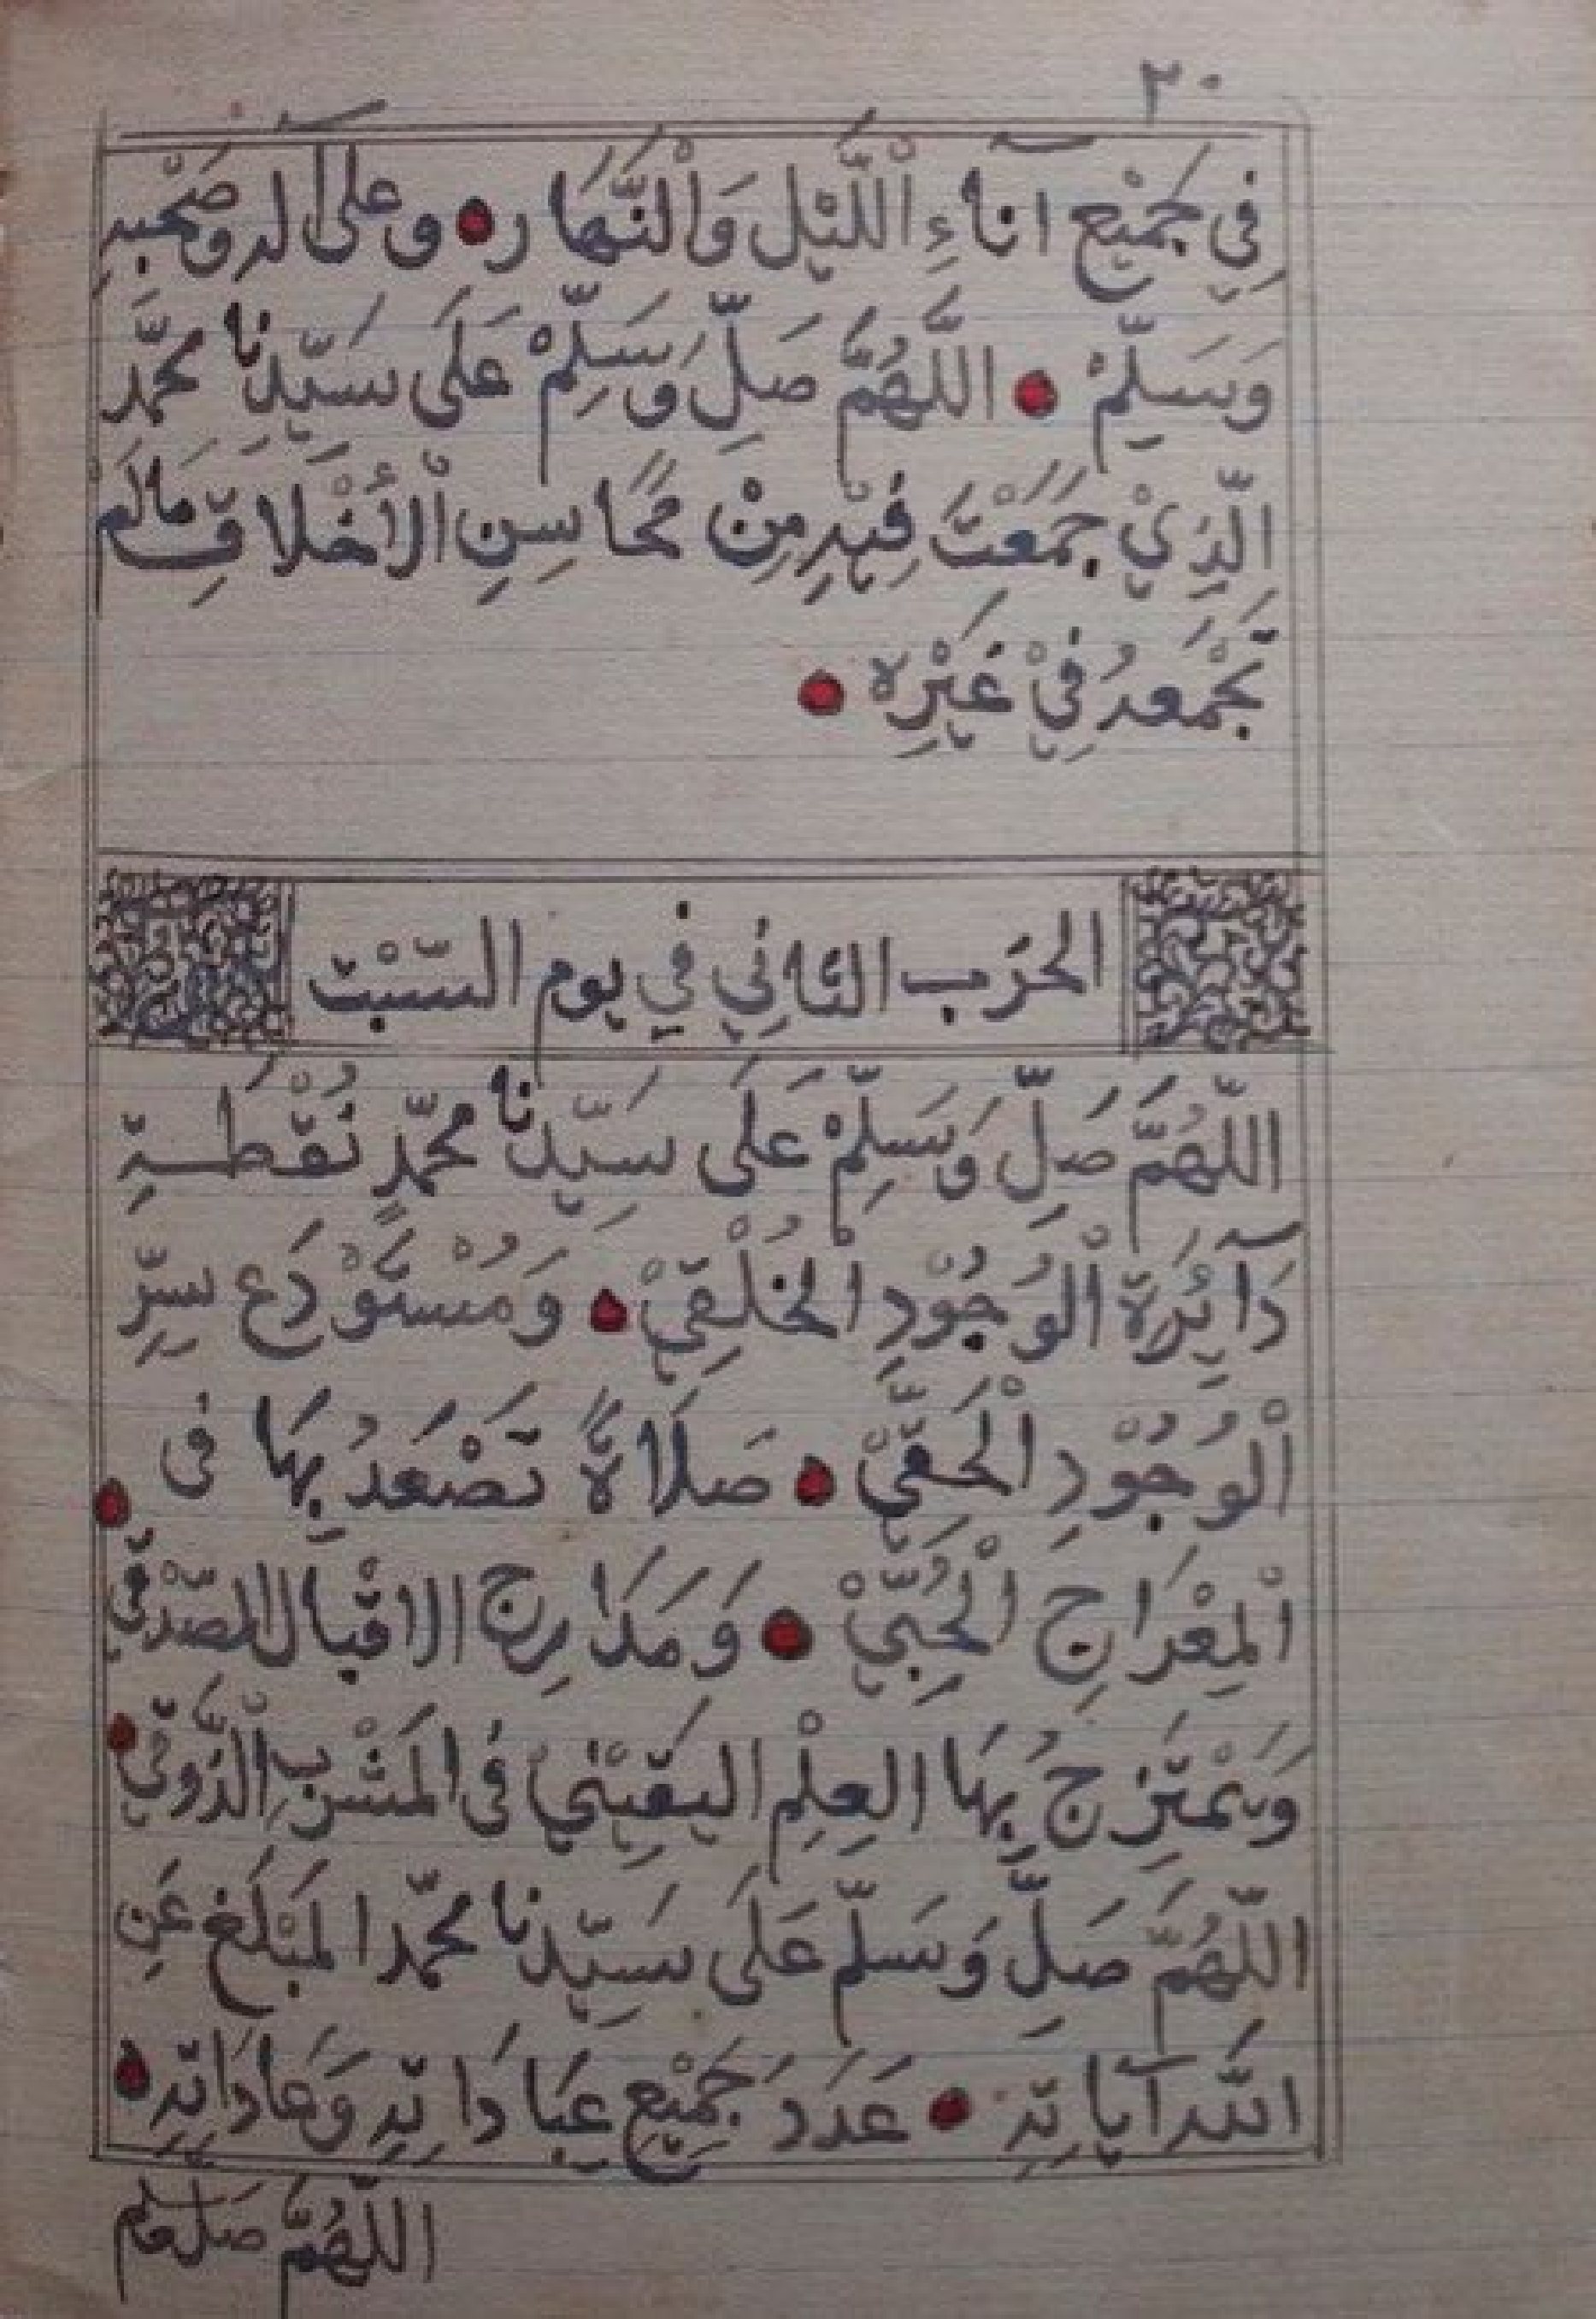 ٢٠
فِي جَمِيْعِ آنَاءِ اْللَّيْلِ وَاْلنَّهَارِ • وَعَلَى آلِهِ وَصَحْبِهِ
وَسَلِّمْ • اللَّهُمَّ صَلِّ وَسَلِّمْ عَلَى سَيِّدِنَا محمَّد
الَّذِيْ جَمَعْتَ فِيْهِ مِنْ مَحَاسِنِ اْلأَخْلَاقِ مَالَمْ
تَجْمَعهُ فِيْ غَيْرِه •
الحزب الثانِي في يوم السّبْت
اللّهُمَّ صَلِّ وَسَلِّمْ عَلَى سَيِّدنَا محمّدٍ نُقْطَةِ
دَآئِرَة اْلوُجُوْدِ اْلخُلْقِيْ • وَمُسْتَوْدَع سِرِّ
اْلوُجُوْدِ اْلحَقِّيْ • صَلَاةً تَصْعَدُ بِهَا فى
اْلمِعْرَاجِ اْلحُبِّيْ • وَمَدَارِج الاقْبال الصّدْقي •
وَيَمْتَزِجُ بِهَا العِلْم اليَقِيْنِي فى المَشْرَبِ الذَّوقي •
اللّهُمَّ صَلِّ وَسَلّم عَلَى سَيِّدنَا محمّد المُبَلِّغ عَنِ
اللّه آيَاتِهِ • عَدَدَ جَمِيْعِ عِبَادَاتِهِ وَعَادَاتِهِ •
اللّهُمَّ صَل وسلم